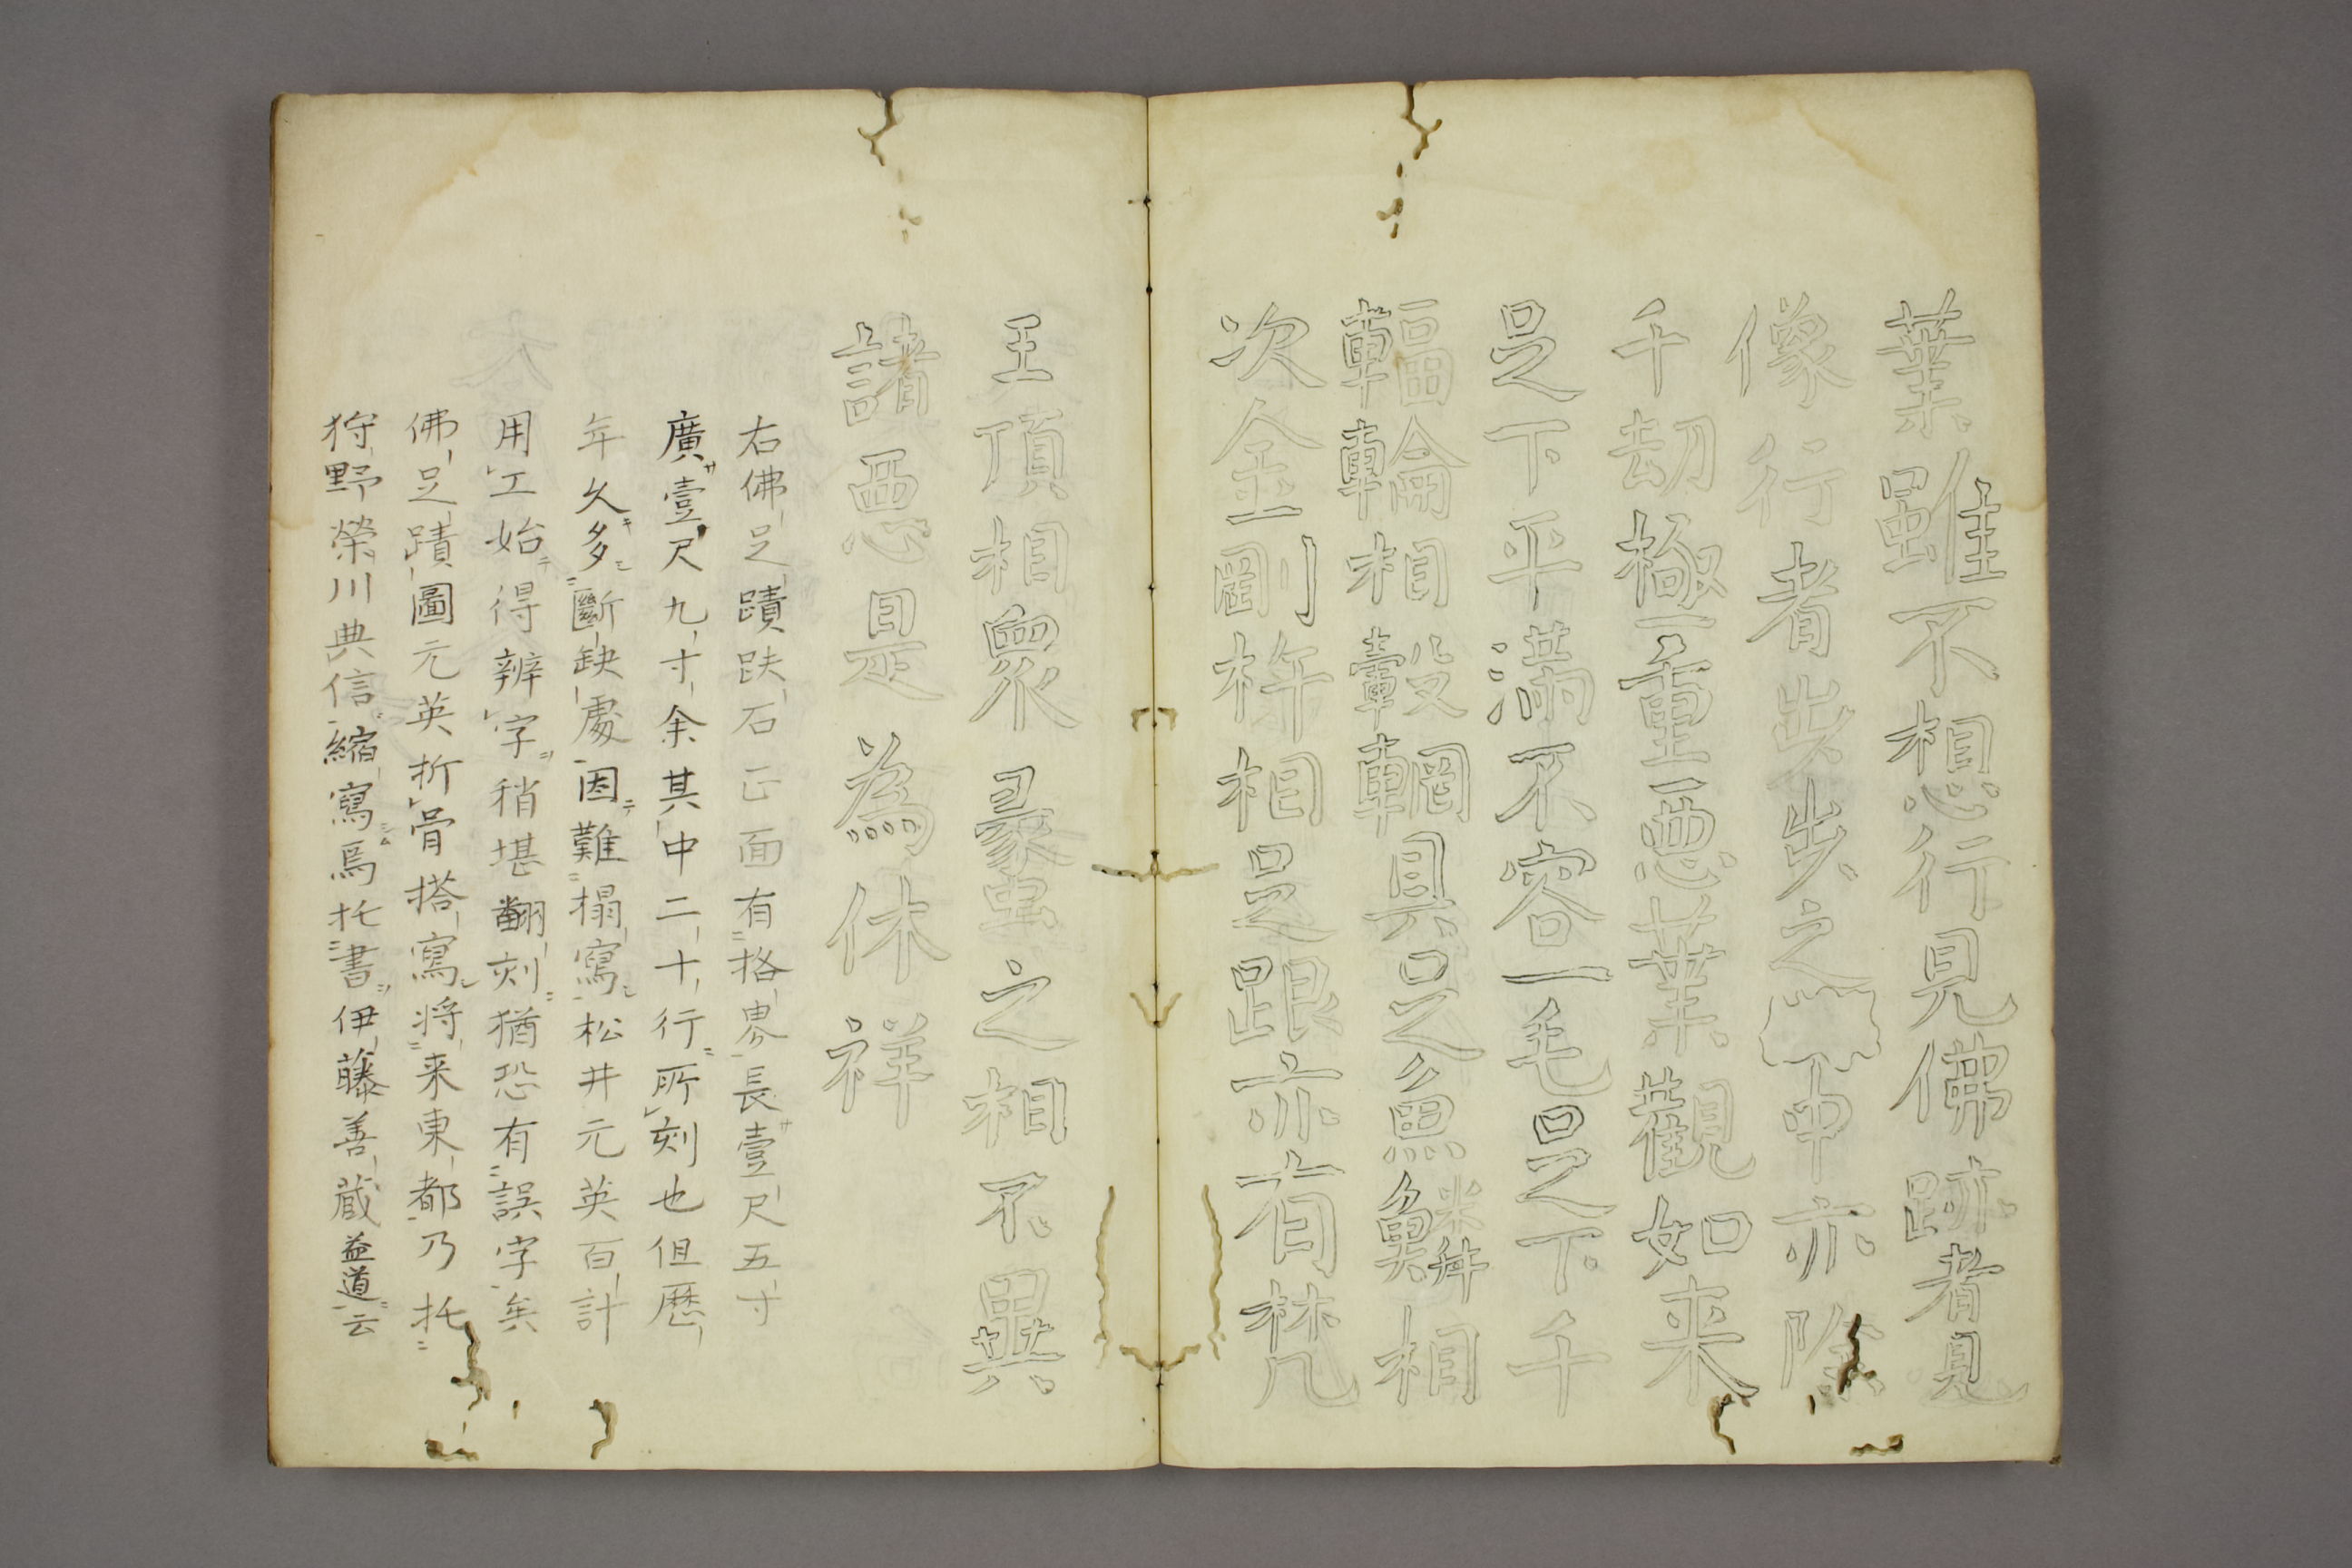 業雖不想行見佛跡者見
像行者步步之中亦除
千劫極重悪業觀如来
足下平滿不容一毛足下千
輻輪相轂輞具足魚鱗相
次金剛杵相足跟亦有梵
王頂相衆蠡之相不異
諸悪是為休祥
右佛足蹟趺石正面有格界長壹尺五寸
廣壹尺九寸余其中二十行所刻也但歴
年久多斷缺處因難搨寫松井元英百計
用工始得辨字稍堪翻刻猶恐有誤字矣
佛足蹟圖元英折骨搭寫将来東都乃托
狩野榮川典信縮寫焉托書伊藤善蔵益道云